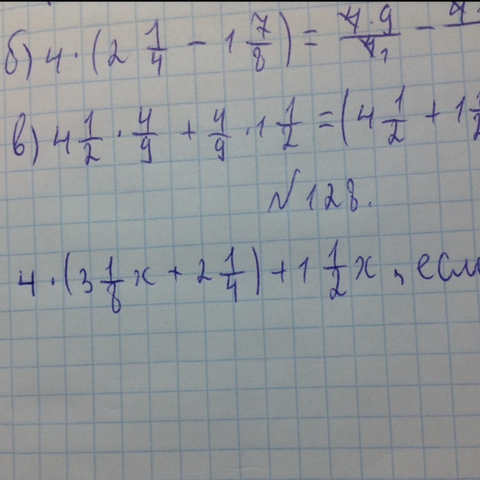 б) 4 · (2 1/4 − 1 7/8) = 4·9/4 1 −
в) 4 1/2 · 4/9 + 4/9 · 1 1/2 = (4 1/2 + 1
№ 128.
4 · (3 1/8 x + 2 1/4) + 1 1/2 x, если